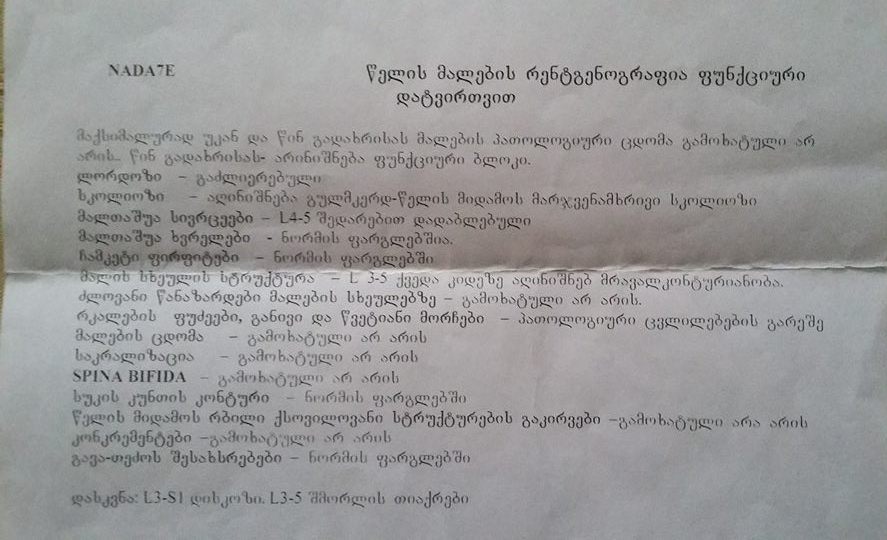 NADA7E
წელის მალების რენტგენოგრაფია ფუნქციური
დატვირთვით
მაქსიმალურად უკან და წინ გადახრისას მალების პათოლოგიური ცდომა გამოხატული არ
არის.. წინ გადახრისას- არინიშნება ფუნქციური ბლოკი.
ლორდოზი – გაძლიერებული
სკოლიოზი – აღინიშნება გულმკერდ-წელის მიდამოს მარჯვენამხრივი სკოლიოზი
მალთაშუა სივრცეები – L4-5 შედარებით დადაბლებული
მალთაშუა ხვრელები - ნორმის ფარგლებშია.
ჩამკეტი ფირფიტები – ნორმის ფარგლებში
მალის სხეულის სტრუქტურა – L 3-5 ქვედა კიდეზე აღინიშნებ მრავალკონტურიანობა.
ძლოვანი წანაზარდები მალების სხეულებზე – გამოხატული არ არის.
რკალების ფუძეები, განივი და წვეტიანი მორჩები – პათოლოგიური ცვლილებების გარეშე
მალების ცდომა – გამოხატული არ არის
საკრალიზაცია – გამოხატული არ არის
SPINA BIFIDA – გამოხატული არ არის
სუკის კუნთის კონტური – ნორმის ფარგლებში
წელის მიდამოს რბილი ქსოვილოვანი სტრუქტურების გაკირვები –გამოხატული არა არის
კონკრემენტები –გამოხატული არ არის
გავა-თეძოს შესახსრებები – ნორმის ფარგლებში
დასკვნა: L3-S1 დისკოზი. L3-5 შმორლის თიაქრები